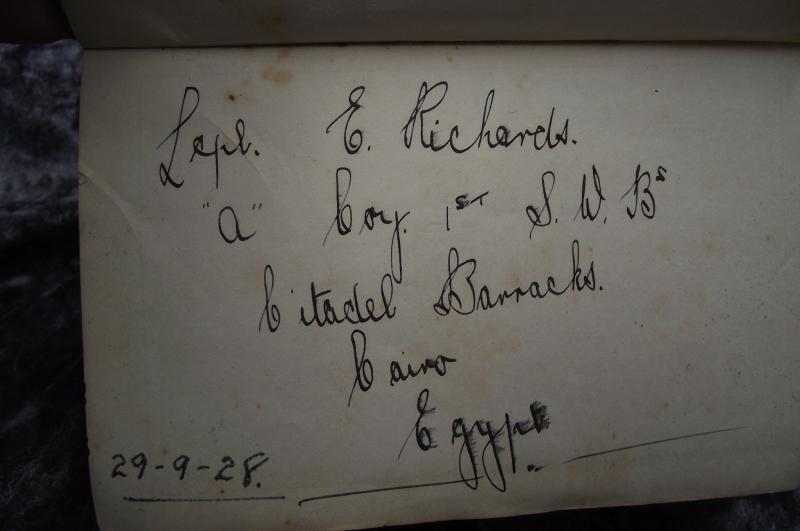 Lcpl. E. Richards.
"A" Coy. 1ST S. W. Bs
Citadel Barracks.
Cairo
Egypt
29-9-28.